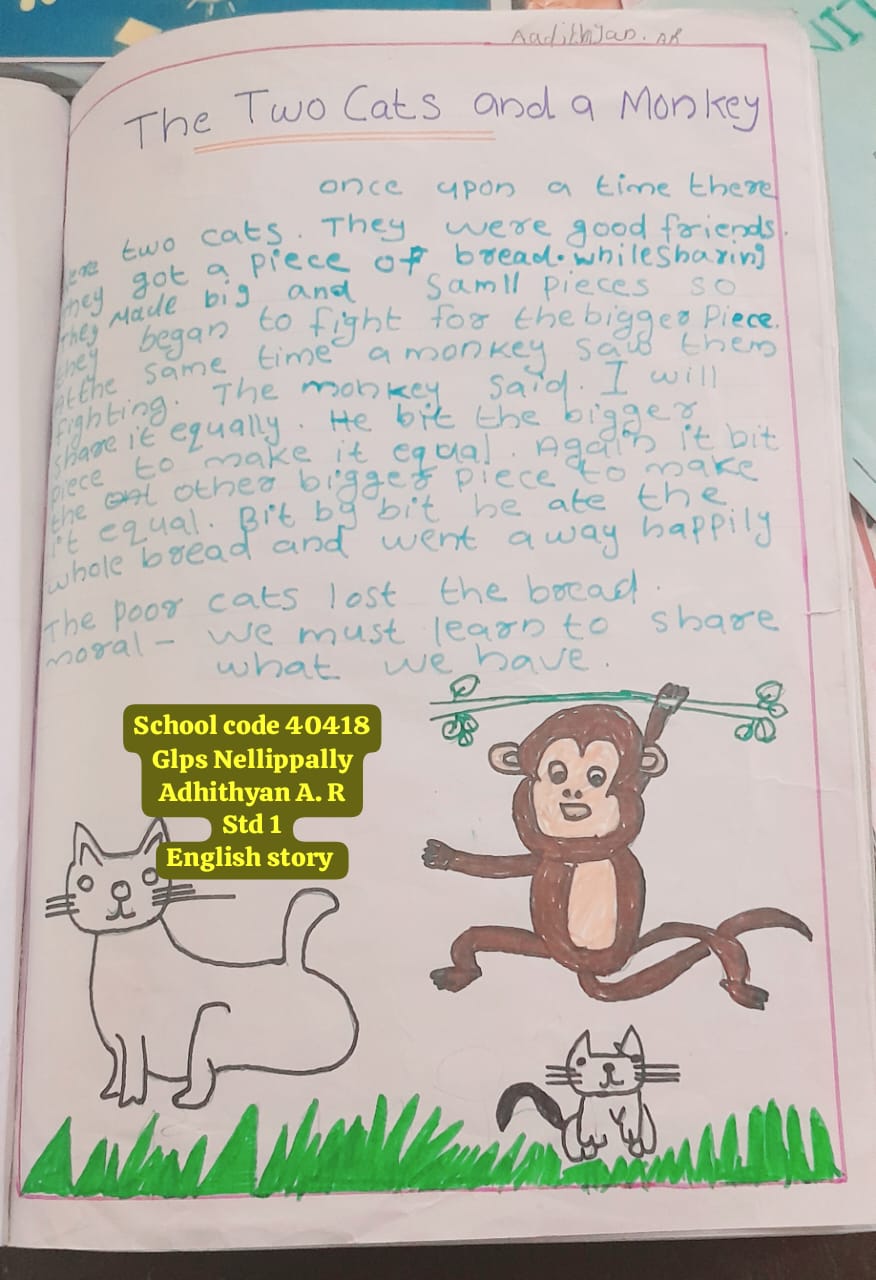 Aadithjan. AR
The Two Cats and a Monkey
once upon a time there
were two cats. They were good friends.
They got a piece of bread. while sharing
They Made big and Samll pieces so
they began to fight for the bigger Piece.
At the same time a monkey saw them
fighting. The monkey said. I will
share it equally. He bit the bigger
piece to make it equal. Again it bit
the other bigger piece to make
it equal. Bit by bit he ate the
whole bread and went away happily
The poor cats lost the bread.
moral - we must learn to share
what we have.
School code 40418
Glps Nellippally
Adhithyan A. R
Std 1
English story